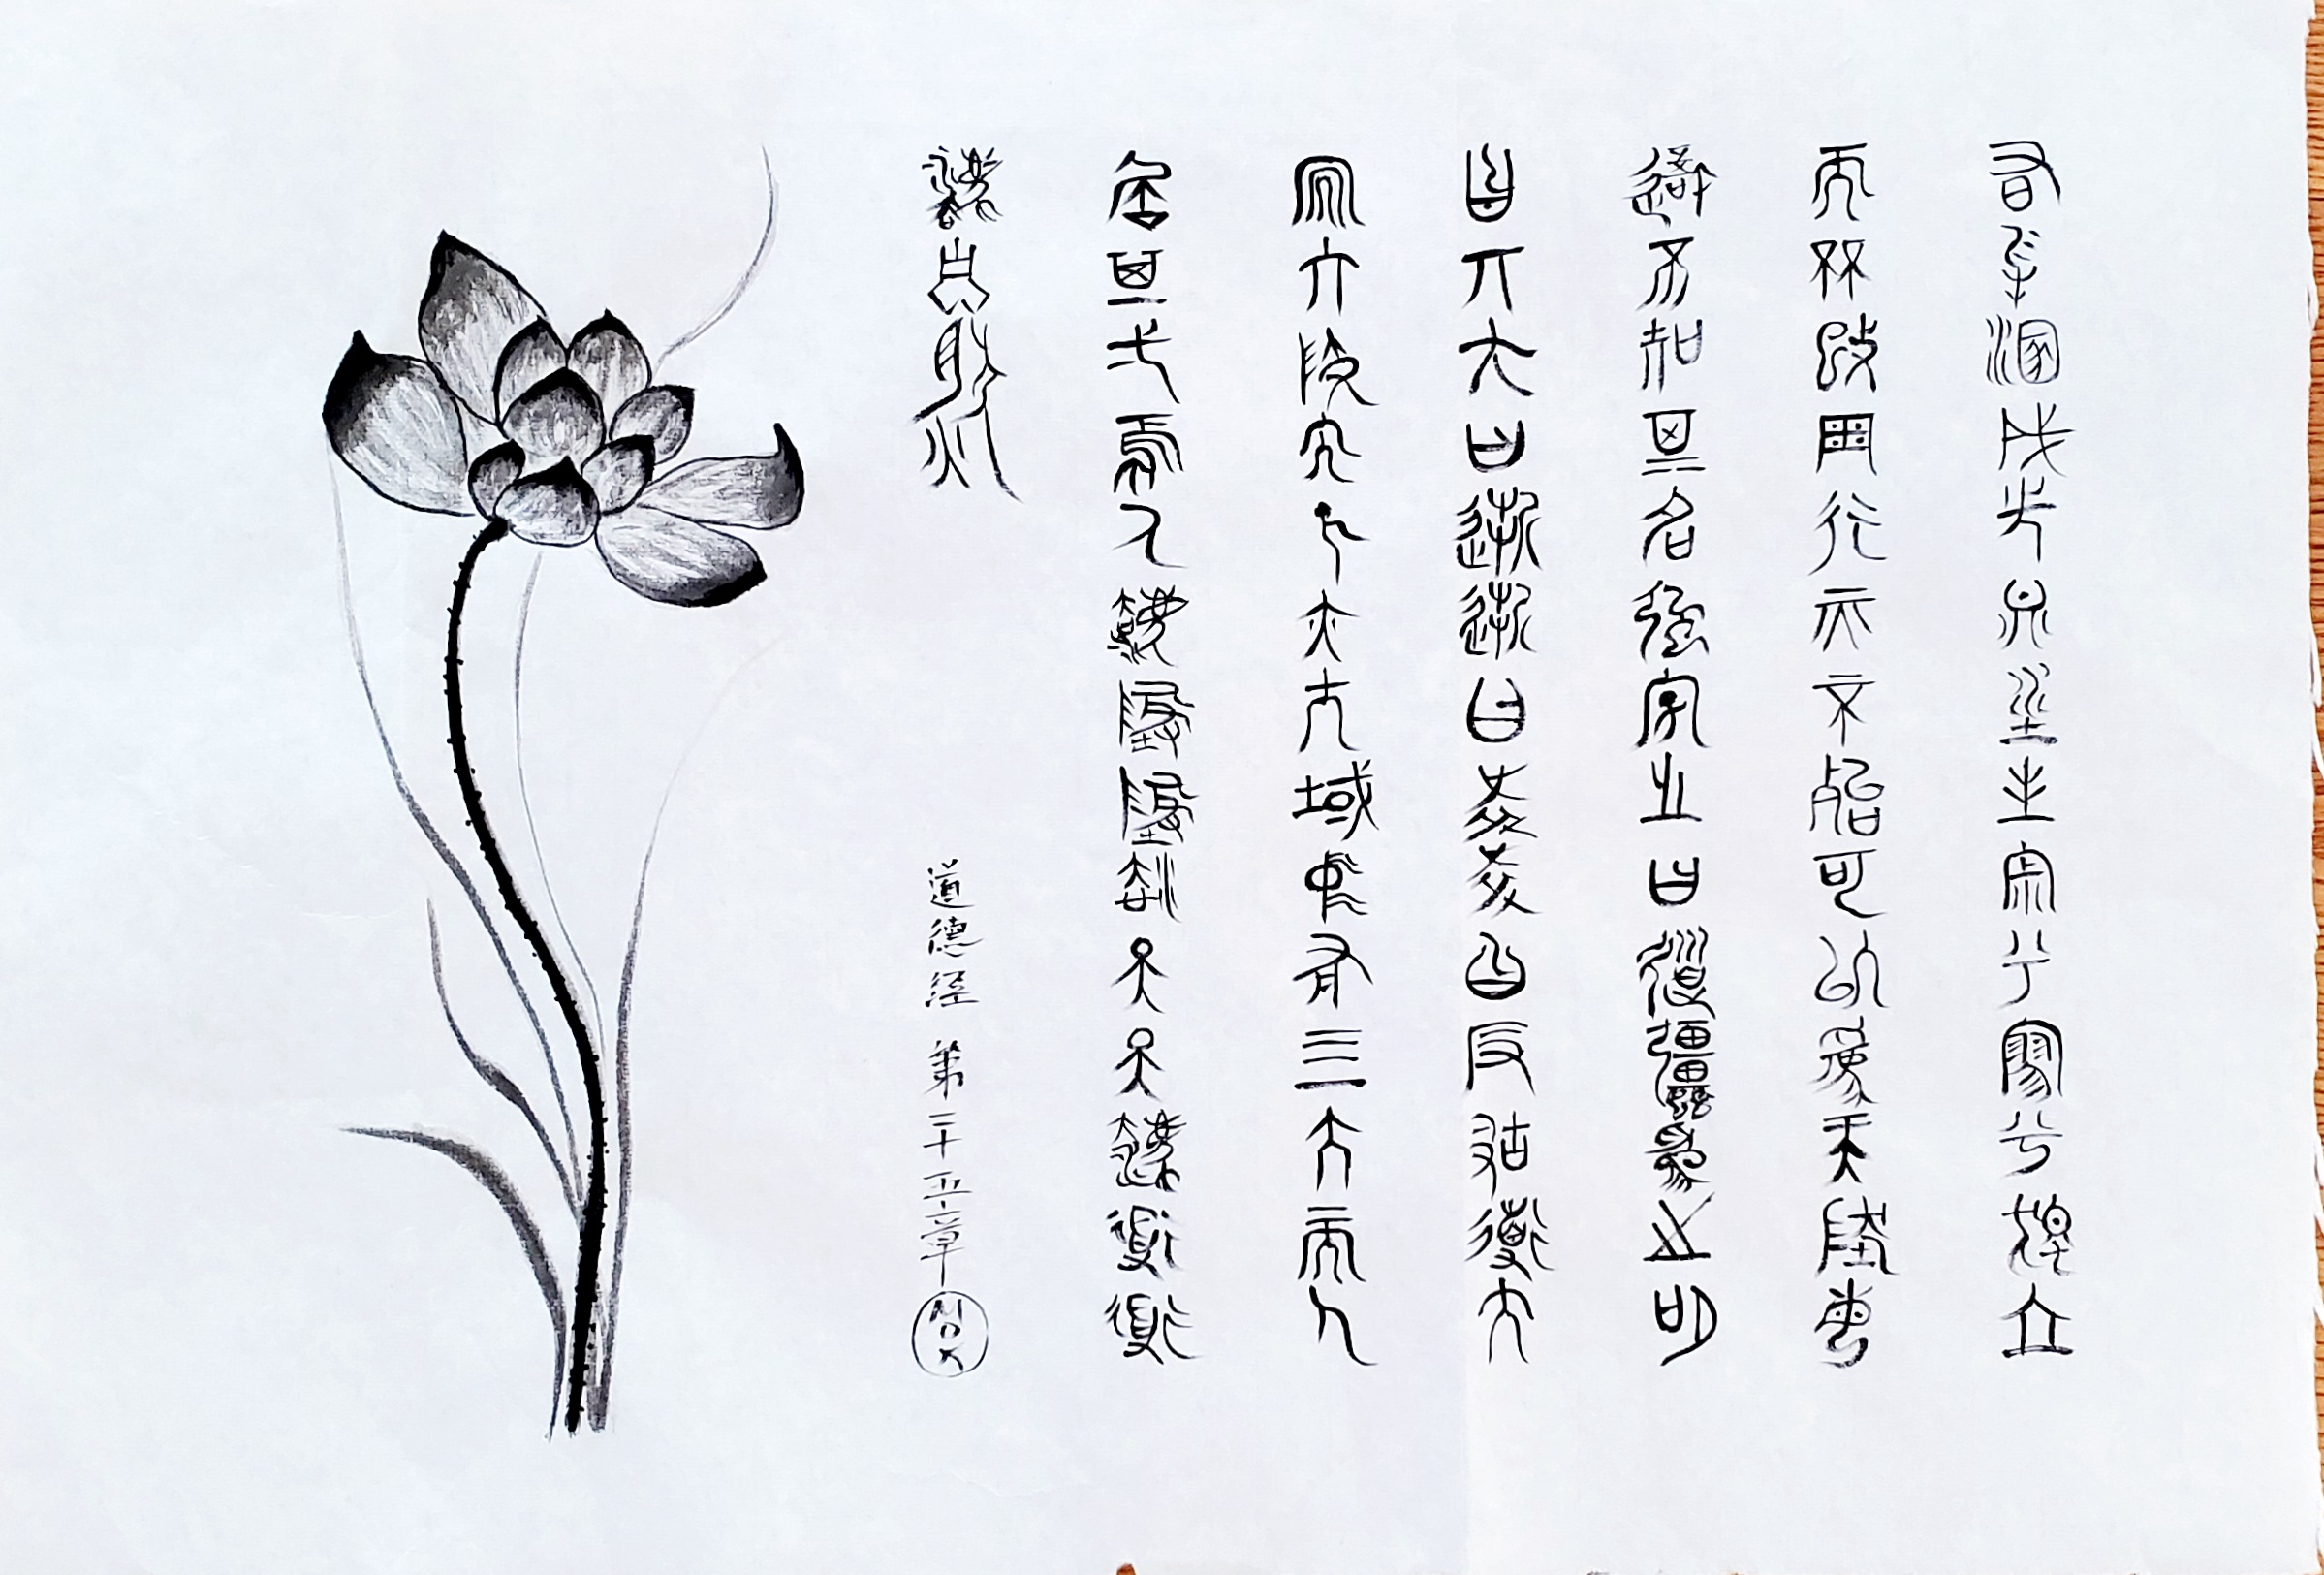 有物混成先天地生寂兮寥兮獨立
而不改周行而不殆可以為天地母
吾不知其名強字之曰道強為之名
曰大大曰逝逝曰遠遠曰反故道大
天大地大人亦大域中有四大而人
居其一焉人法地地法天天法道道
法自然
道德经 第二十五章 MOK